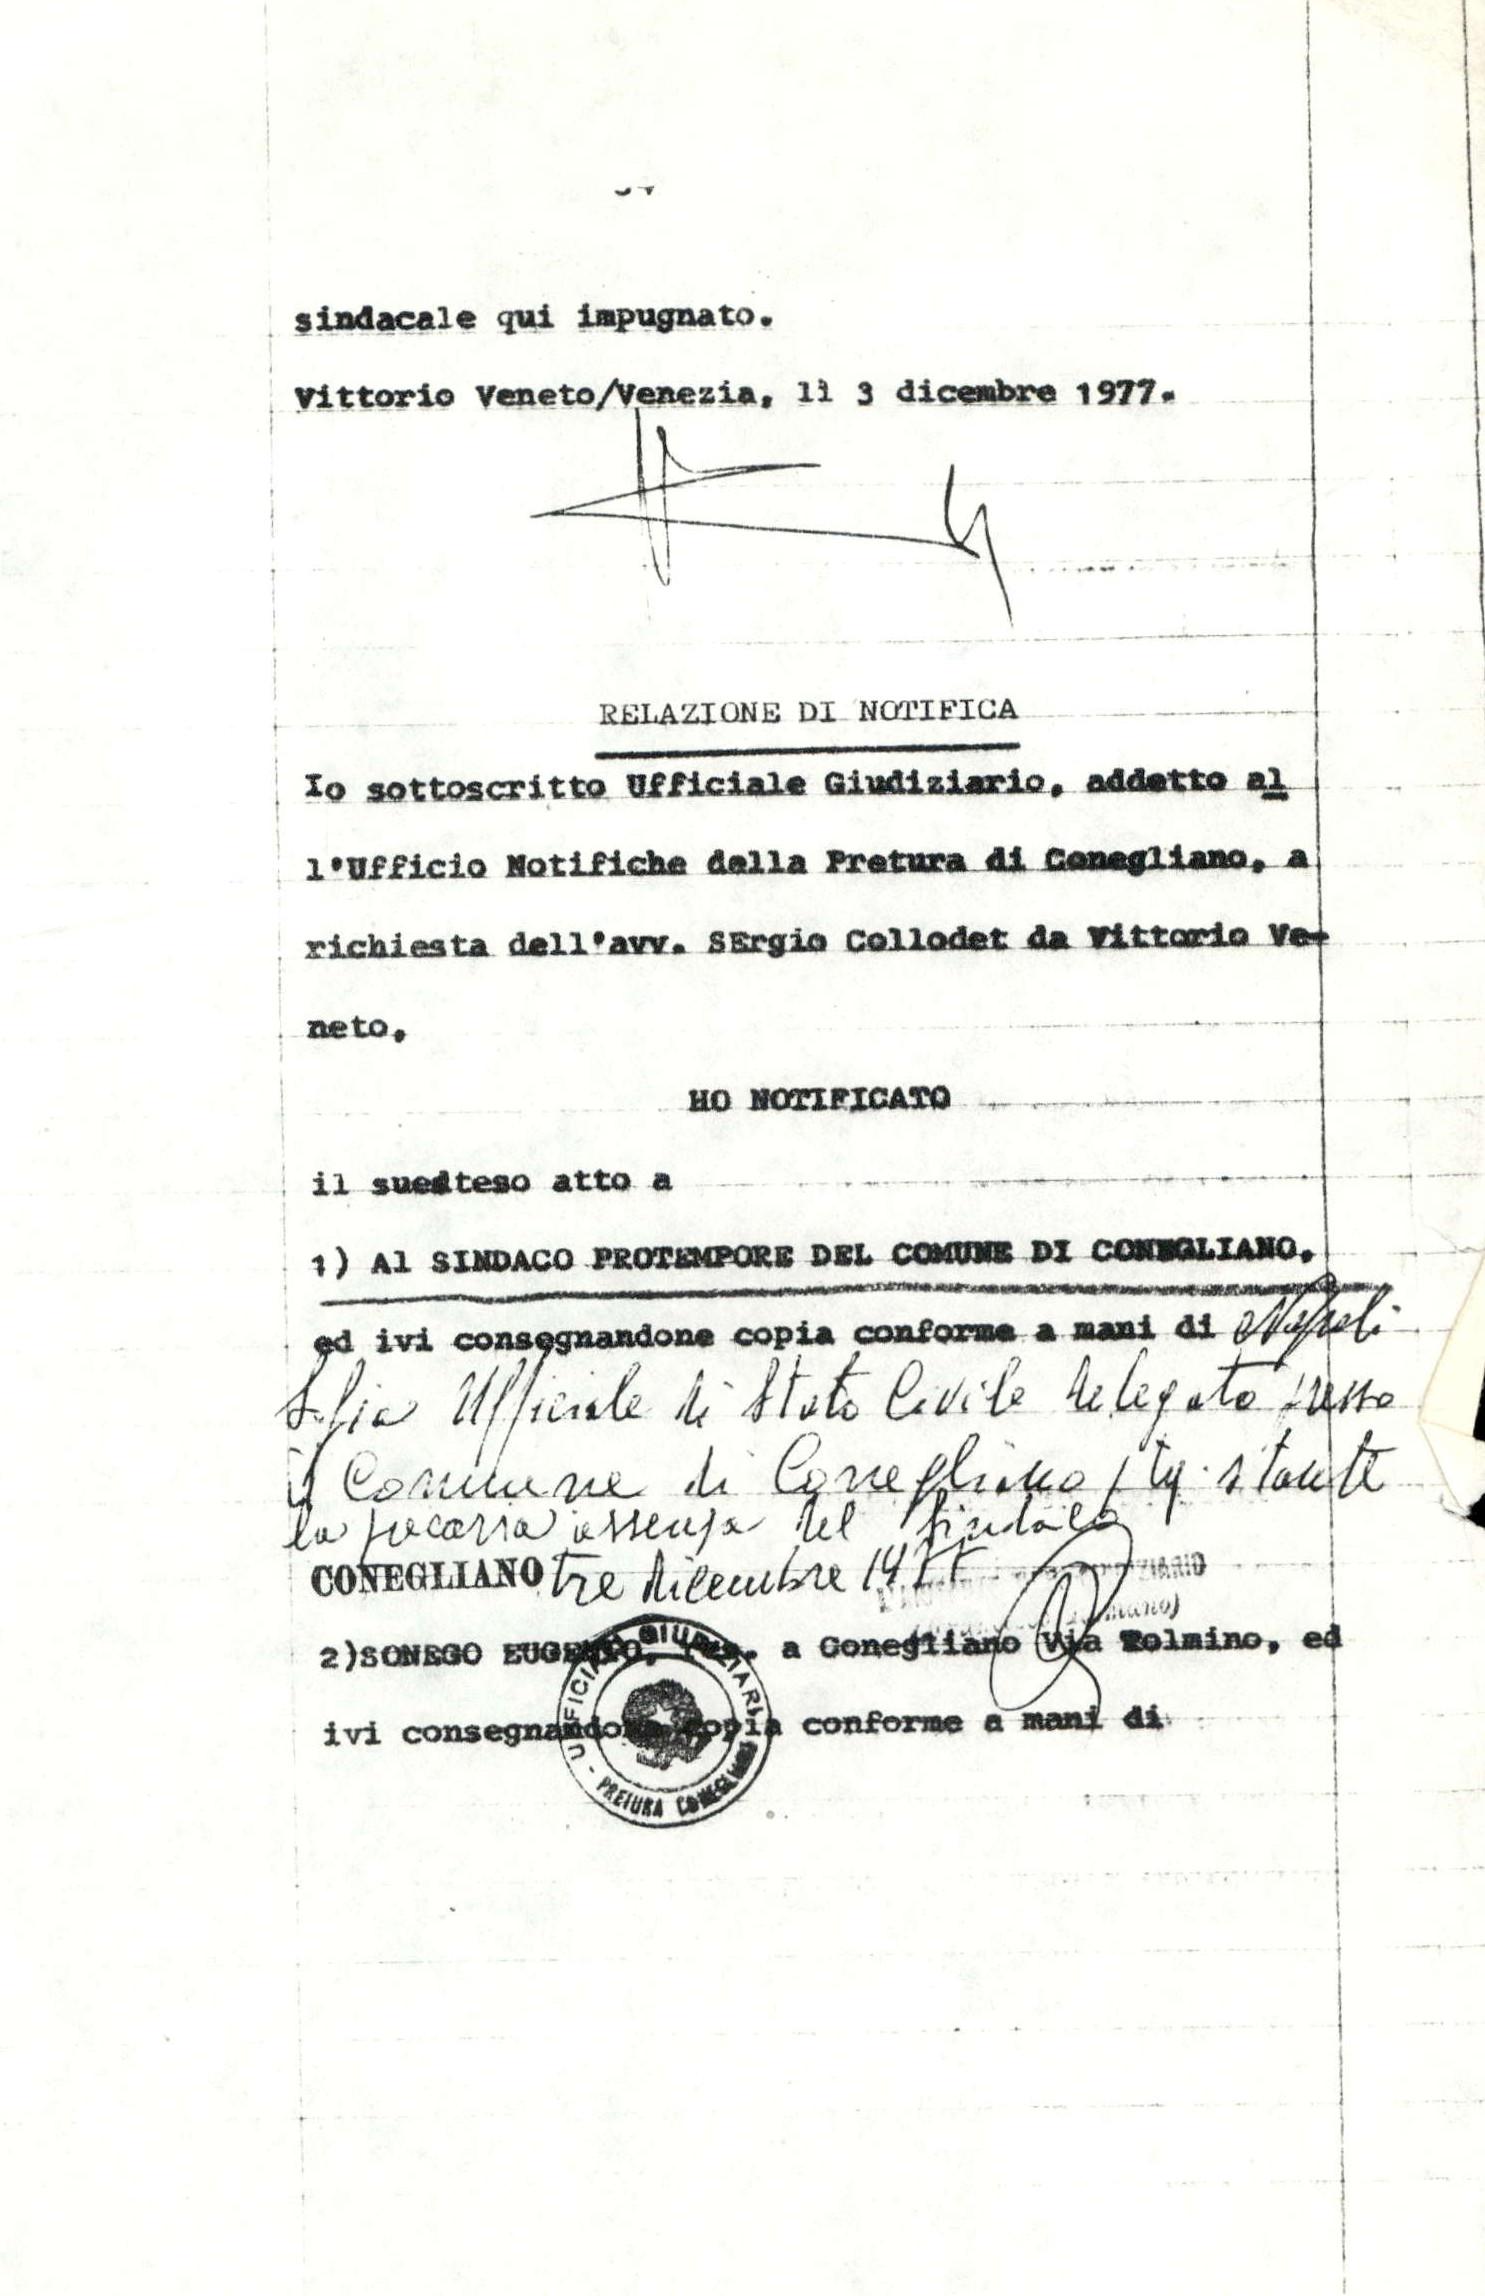 sindacale qui impugnato.
Vittorio Veneto/Venezia, lì 3 dicembre 1977.
RELAZIONE DI NOTIFICA
Io sottoscritto Ufficiale Giudiziario, addetto al
l'Ufficio Notifiche della Pretura di Conegliano, a
richiesta dell'avv. SErgio Collodet da Vittorio Ve-
neto,
HO NOTIFICATO
il suesteso atto a
1) Al SINDACO PROTEMPORE DEL COMUNE DI CONEGLIANO,
ed ivi consegnandone copia conforme a mani di Napoli
Sofia Ufficiale di Stato Civile delegato presso
il Comune di Conegliano stante
la precaria assenza del Sindaco
CONEGLIANO tre dicembre 1977
2)SONEGO EUGENIO, res. a Conegliano Via Tolmino, ed
ivi consegnandone copia conforme a mani di
UFFICIALI GIUDIZIARI - PRETURA CONEGLIANO